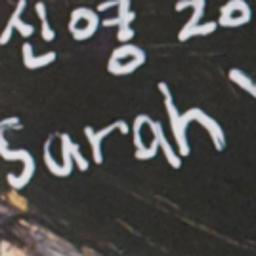 신영 20
Sarah